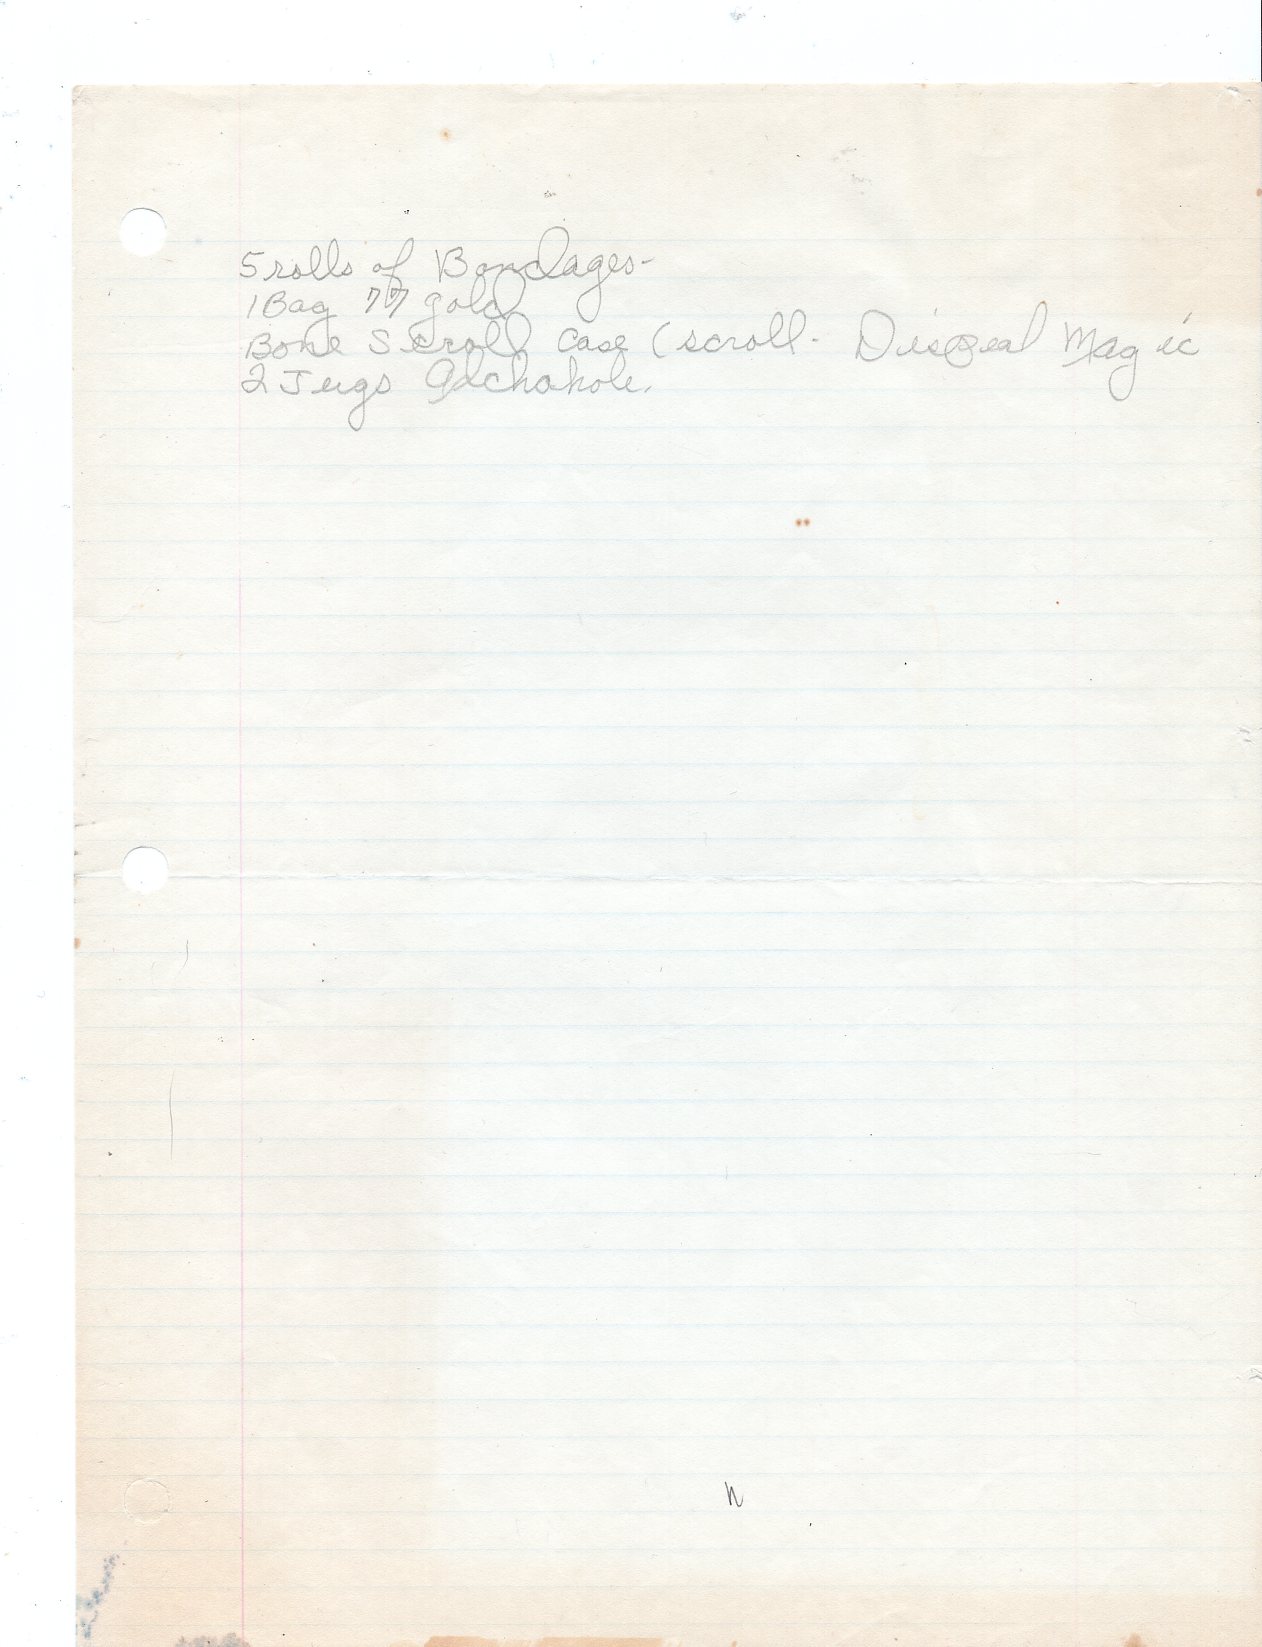 5 rolls of Bondages-
1 Bag 77 gold
Bone Scroll Case (scroll- Dispeal Magic
2 Jugs Alchohole.
h